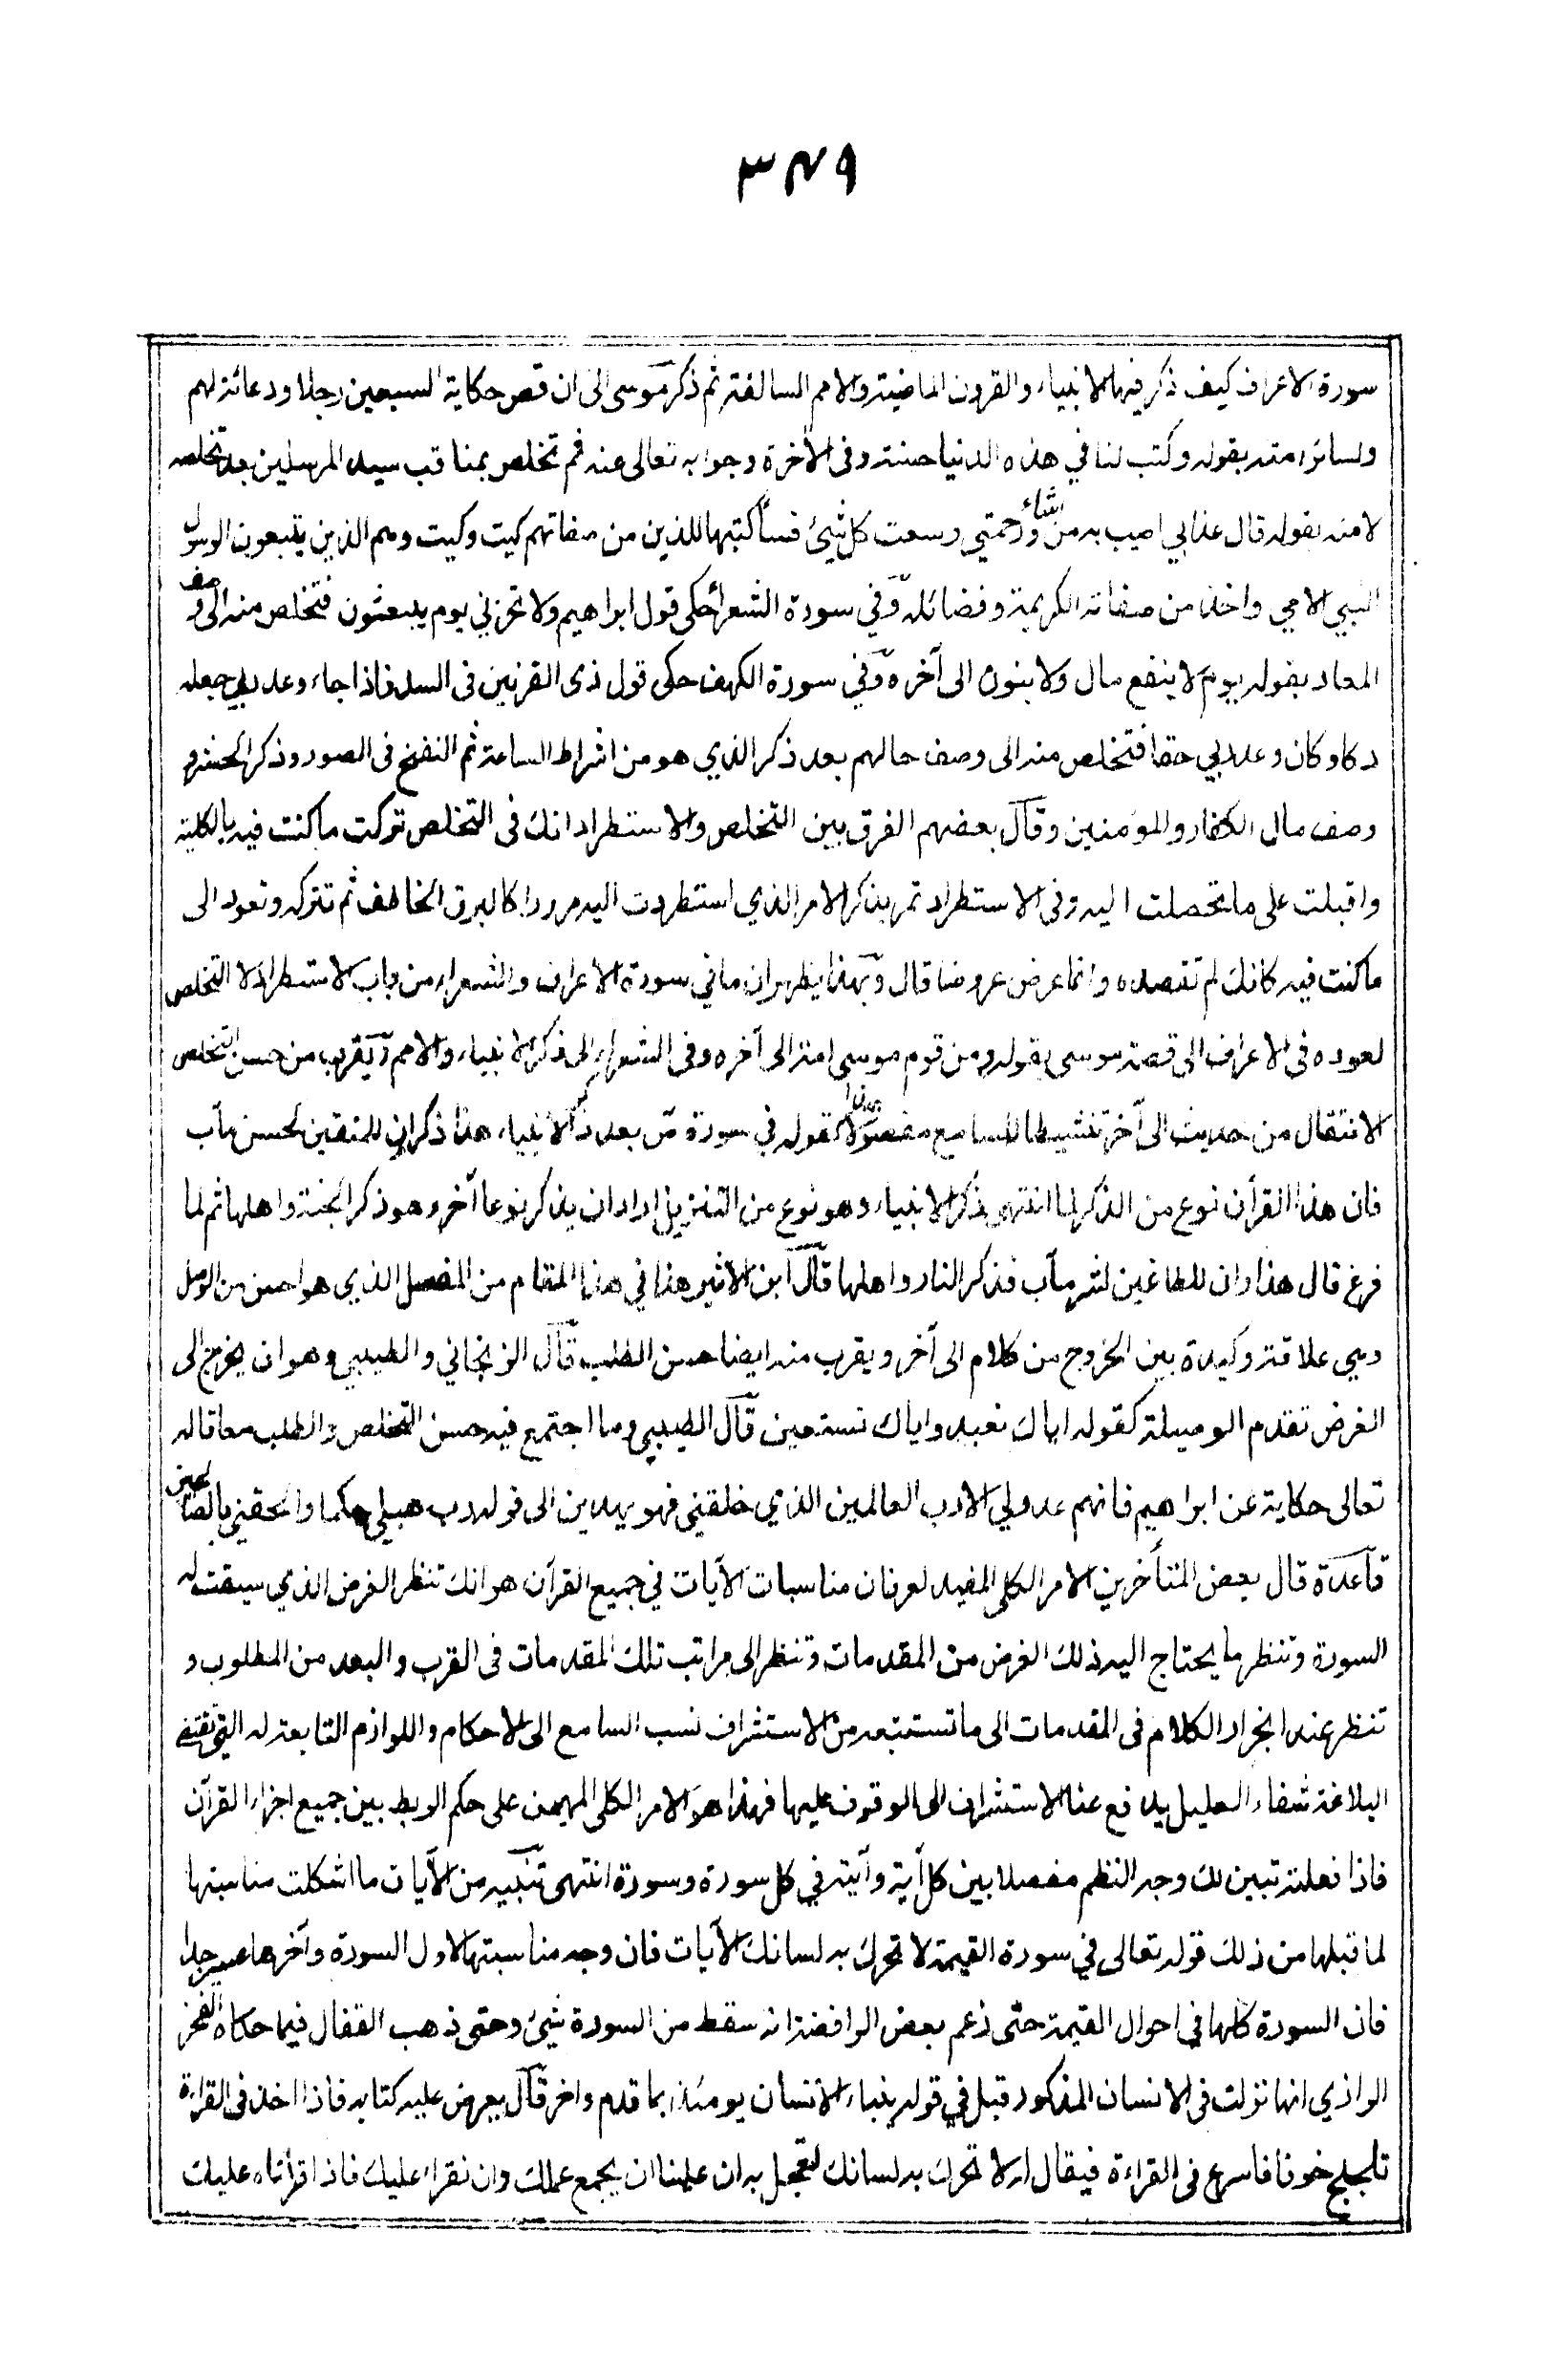 ٣٤٩
سورة الاعراف كيف ذكر فيها الانبياء والقرون الماضية والامم السالفة ثم ذكر موسى الى ان قص حكاية السبعين رجلا ودعائه لهم
ولسائر امته بقوله وكتب لنا في هذه الدنيا حسنة وفى الآخرة وجوابه تعالى عنه ثم تخلص بمناقب سيد المرسلين بعد تخلصه
لامته بقوله قال عذابي اصيب به من اشاء ورحمتي وسعت كل شيئ فسأكتبها للذين من صفاتهم كيت وكيت وهم الذين يتبعون الرسول
النبي الامي واخذ من صفاته الكريمة وفضائله وفي سورة الشعراء حكى قول ابراهيم ولا تخزني يوم يبعثون فتخلص منه الى وصف
المعاد بقوله يوم لا ينفع مال ولا بنون الى آخره وفي سورة الكهف حكى قول ذى القرنين فى السد فاذا جاء وعد ربي جعله
دكا وكان وعد ربي حقا فتخلص منه الى وصف حالهم بعد ذكر الذي هو من اشراط الساعة ثم النفخ فى الصور وذكر الحشر و
وصف مال الكفار والمؤمنين وقال بعضهم الفرق بين التخلص والاستطراد انك فى التخلص تركت ما كنت فيه بالكلية
واقبلت على ما تخصلت اليه وفى الاستطراد تمر بذكر الامر الذي استطردت اليه مرورا كالبرق الخاطف ثم تتركه وتعود الى
ما كنت فيه كانك لم تقصده وانما عرض عروضا قال وبهذا يظهر ان ما في سورة الاعراف والشعراء من باب الاستطراد لا التخلص
لعوده فى الاعراف الى قصة موسى بقوله ومن قوم موسى امة الى آخره وفى الشعراء الى ذكر الانبياء والامم ويقرب من حسن التخلص
الانتقال من حديث الى آخر تنشيطا للسامع مفصولا بهذا كقوله في سورة ص بعد ذكر الانبياء هذا ذكر وان للمتقين لحسن مآب
فان هذا القرآن نوع من الذكر لما انتهى ذكر الانبياء وهو نوع من التنزيل اراد ان يذكر نوعا آخر وهو ذكر الجنة واهلها ثم لما
فرغ قال هذا وان للطاغين لشر مآب فذكر النار واهلها قال ابن الاثير هذا في هذا المقام من الفصل الذي هو احسن من الوصل
وهي علاقة وكيدة بين الخروج من كلام الى آخر ويقرب منه ايضا حسن الطلب قال الزنجاني والطيبي وهو ان يخرج الى
الغرض تقدم الوسيلة كقوله اياك نعبد واياك نستعين قال الطيبي وما اجتمع فيه حسن التخلص والطلب معا قاله
تعالى حكاية عن ابراهيم فانهم عدو لي الا رب العالمين الذي خلقني فهو يهدين الى قوله رب هب لي حكما والحقني بالصالحين
قاعدة قال بعض المتأخرين الامر الكلى المفيد لعرفان مناسبات الآيات في جميع القرآن هو انك تنظر الغرض الذي سيقت له
السورة وتنظر ما يحتاج اليه ذلك الغرض من المقدمات وتنظر الى مراتب تلك المقدمات فى القرب والبعد من المطلوب و
تنظر عند انجرار الكلام فى المقدمات الى ما تستتبعه من الاستشراف نسب السامع الى الاحكام واللوازم التابعة له التي تقتضى
البلاغة شفاء العليل يدفع عنا الاستشراف الى الوقوف عليها فهذا هو الامر الكلى المهيمن على حكم الربط بين جميع اجزاء القرآن
فاذا فعلته تبين لك وجه النظم مفصلا بين كل آية وآية في كل سورة وسورة انتهى تنبيه من الآيات ما اشكلت مناسبتها
لما قبلها من ذلك قوله تعالى في سورة القيمة لا تحرك به لسانك الآيات فان وجه مناسبتها لاول السورة وآخرها عسير جدا
فان السورة كلها في احوال القيمة حتى زعم بعض الرافضة انه سقط من السورة شيئ وحتى ذهب القفال فيما حكاه الفخر
الرازي انها نزلت فى الانسان المذكور قبل في قوله ينباء الانسان يومئذ بما قدم واخر قال يعرض عليه كتابه فاذا اخذ فى القراءة
تلجلج خوفا فاسرع فى القراءة فيقال له لا تحرك به لسانك لتعجل به ان علينا ان يجمع عملك وان نقراء عليك فاذا قرأناه عليك